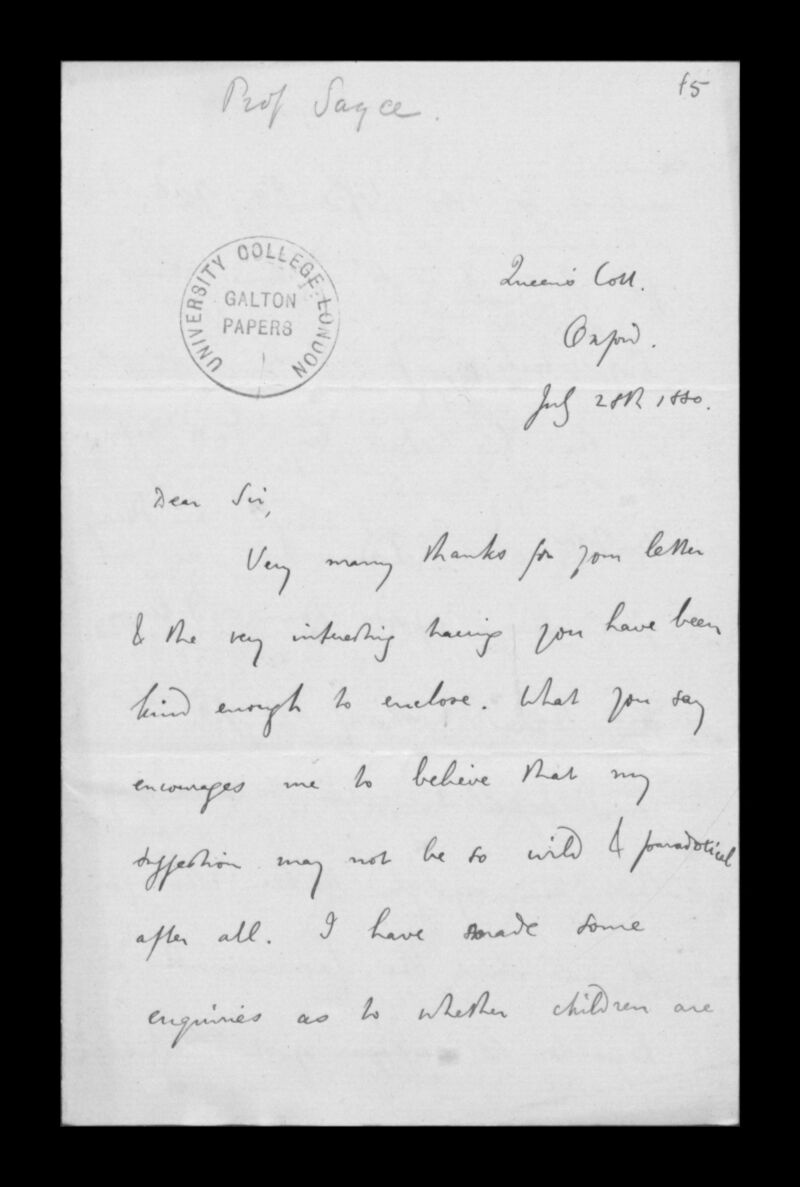 Prof Sayce.
f5
UNIVERSITY COLLEGE LONDON
GALTON
PAPERS
Queen's Coll.
Oxford.
July 28th 1880.
Dear Sir,
Very many thanks for your letter
& the very interesting you have been
kind enough to enclose. What you say
encourages me to believe that my
suggestion may not be so wild & paradoxical
after all. I have made some
enquiries as to whether children are